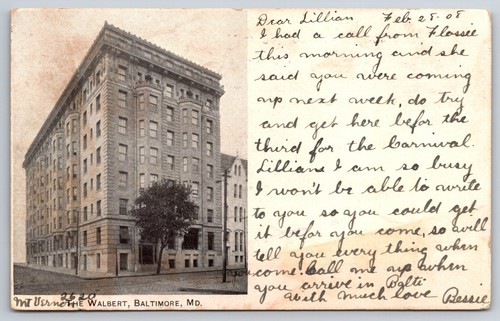 Dear Lillian Feb. 28-08
I had a call from Flossie
this morning and she
said you were coming
up next week, do try
and get here befor the
third for the Carnival.
Lillian I am so busy
I won't be able to write
to you so you could get
it befor you come, so will
tell you every thing when
you come. Call me up when
you arrive in Balti
with much love Bessie
Mt Vernon 2620
THE WALBERT, BALTIMORE, MD.